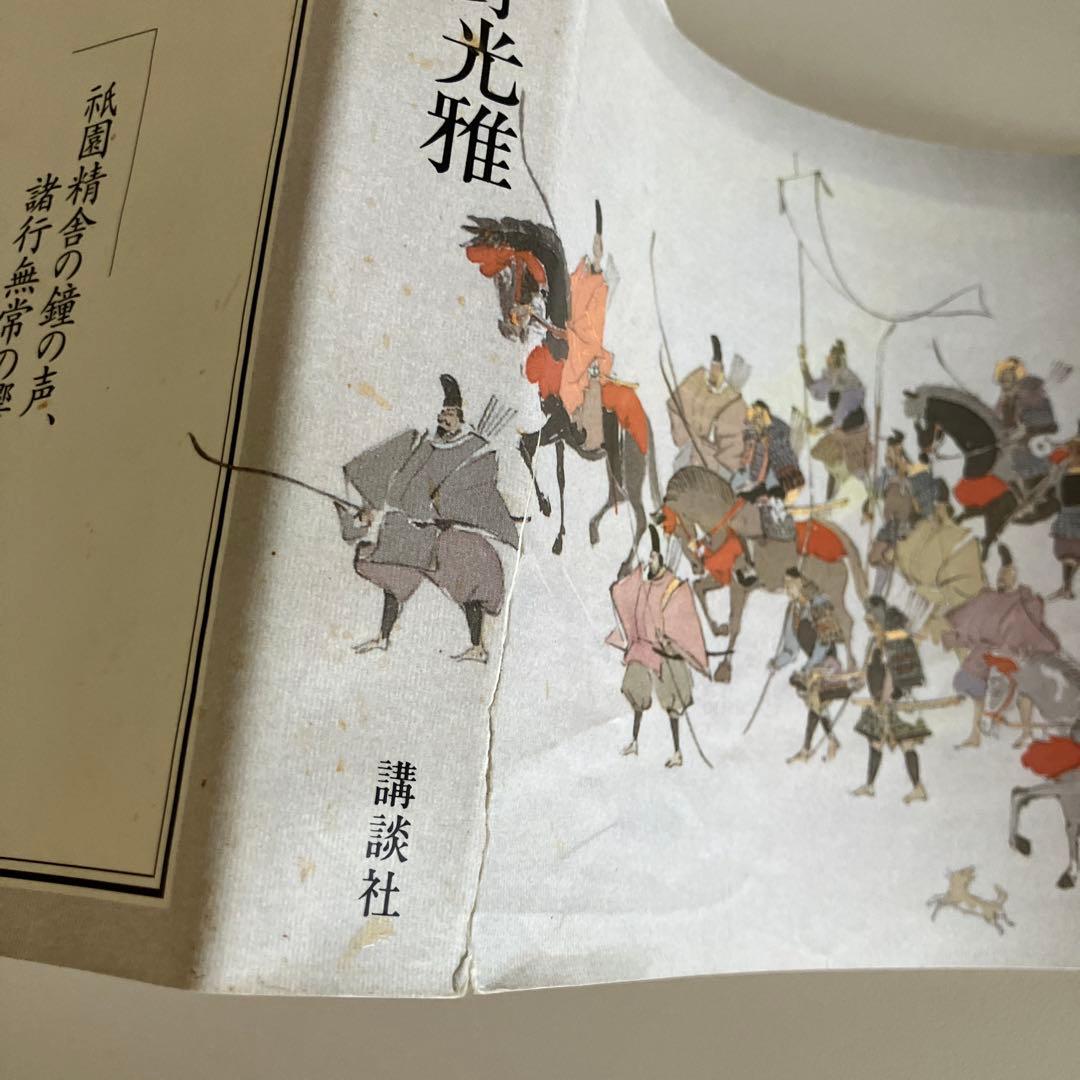 光雅
講談社
祇園精舎の鐘の声、
諸行無常の